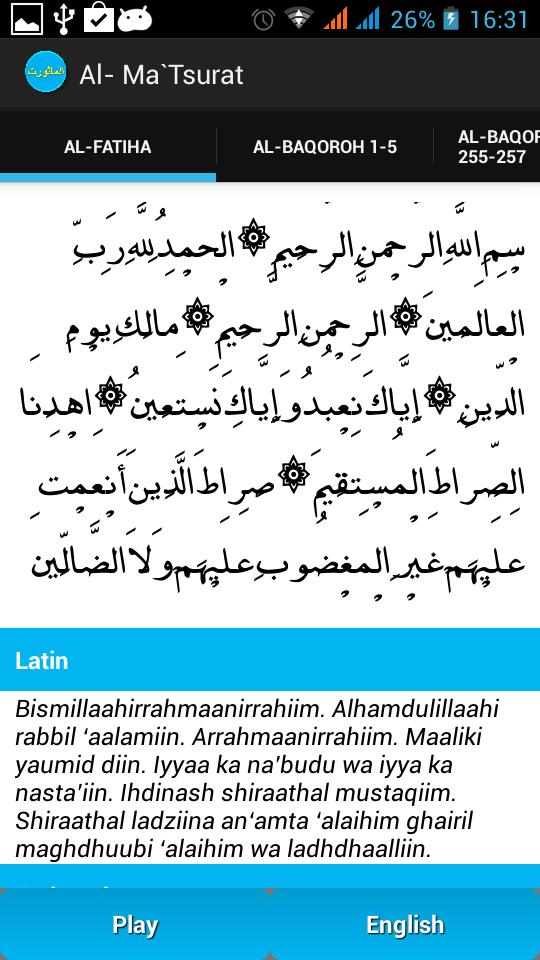 26% 16:31
الماثورت
Al- Ma`Tsurat
AL-FATIHA
AL-BAQOROH 1-5
AL-BAQOR
255-257
بِسْمِ اللَّهِ الرَّحْمَنِ الرَّحِيمِ ۞ الْحَمْدُ لِلَّهِ رَبِّ
الْعَالَمِينَ ۞ الرَّحْمَنِ الرَّحِيمِ ۞ مَالِكِ يَوْمِ
الدِّينِ ۞ إِيَّاكَ نَعْبُدُ وَإِيَّاكَ نَسْتَعِينُ ۞ اهْدِنَا
الصِّرَاطَ الْمُسْتَقِيمَ ۞ صِرَاطَ الَّذِينَ أَنْعَمْتَ
عَلَيْهِمْ غَيْرِ الْمَغْضُوبِ عَلَيْهِمْ وَلَا الضَّالِّينَ
Latin
Bismillaahirrahmaanirrahiim. Alhamdulillaahi
rabbil ‘aalamiin. Arrahmaanirrahiim. Maaliki
yaumid diin. Iyyaa ka na’budu wa iyya ka
nasta’iin. Ihdinash shiraathal mustaqiim.
Shiraathal ladziina an‘amta ‘alaihim ghairil
maghdhuubi ‘alaihim wa ladhdhaalliin.
Play
English